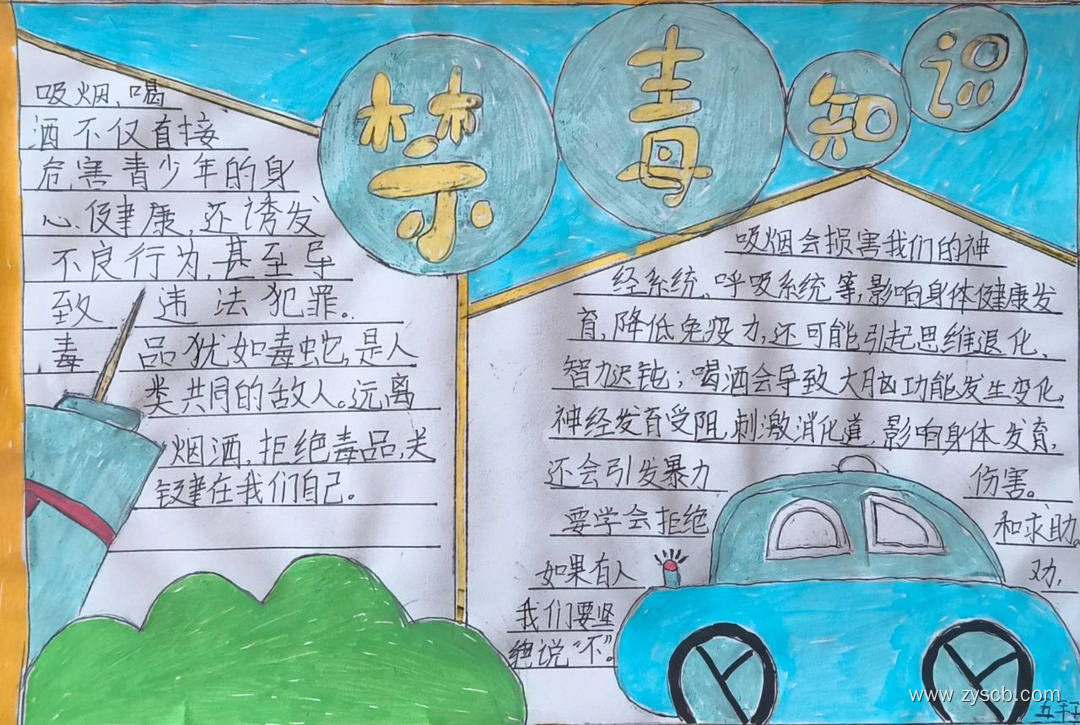 禁毒知识
吸烟、喝
酒不仅直接
危害青少年的身
心健康,还诱发
不良行为,甚至导
致违法犯罪。
毒品犹如毒蛇,是人
类共同的敌人。远离
烟酒,拒绝毒品,关
键在我们自己。
吸烟会损害我们的神
经系统、呼吸系统等,影响身体健康发
育,降低免疫力,还可能引起思维退化、
智力迟钝;喝酒会导致大脑功能发生变化,
神经发育受阻,刺激消化道,影响身体发育,
还会引发暴力 伤害。
要学会拒绝 和求助。
如果有人 劝,
我们要坚
绝说“不”。
www.zyscb.com